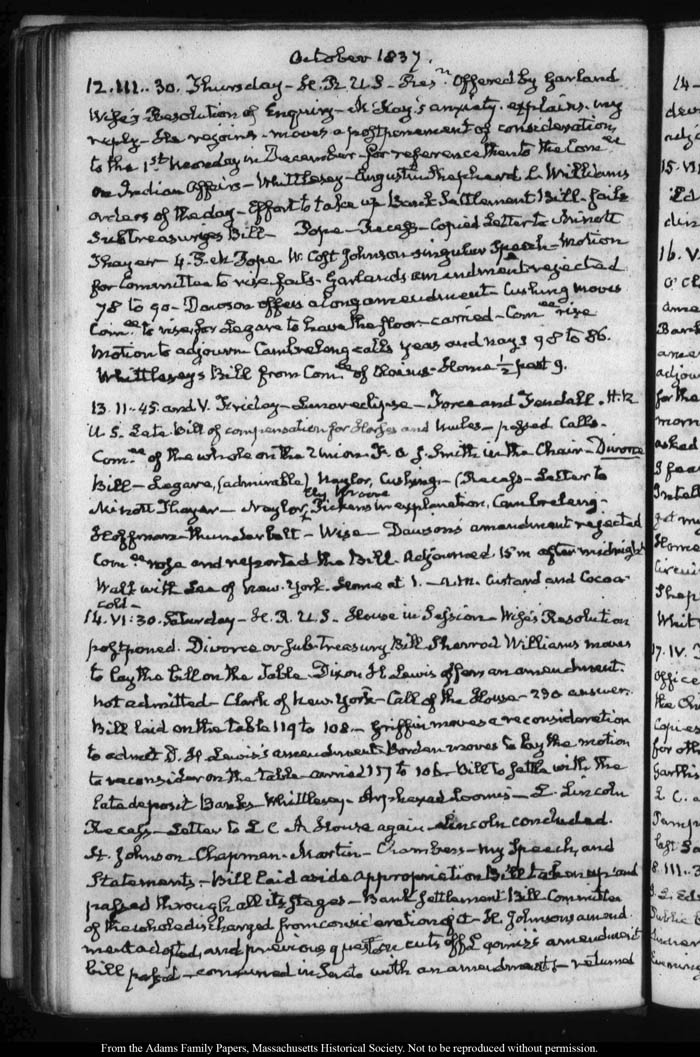 October 1837.
12. III.. 30. Thursday - H. R. U.S. - Res.n Offered by Garland
Wise's Resolution of Enquiry - McKay's anxiety. explains. my
reply - He rejoins - moves a postponement of consideration
to the 1st Monday in December - for reference then to the Com.ee
on Indian Affairs - Whittlesey - Augustin Shepperd L. Williams
orders of the day - Effort to take up Bank Settlement Bill - fails
Subtreasury Bill - Pope - Recess - Copied Letter to Minott
Thayer 4. Pope W. Cost Johnson singular Speech - Motion
for Committee to rise fails - Garland's amendment rejected
78 to 90 - Dawson offers a long amendment - Cushing moves
Com.ee to rise, for Legare to have the floor - carried - Com.ee rise
Motion to adjourn Cambreleng calls yeas and nays 98 to 86.
Whittlesey's Bill from Com.ee of Claims - Home ½ past 9.
13. II - 45 and V. Friday - Lunar eclipse - Force and Fendall. H. R
U S. Late. Bill of compensation for Horses and Mules - passed. Calls -
Com.ee of the whole on the Union F. O. J. Smith in the Chair - Divorce
Bill - Legare, (admirable) Naylor, Cushing - (Recess - Letter to
Minott Thayer - Naylor, Ely Moore Pickens in explanation, Cambreleng -
Hoffman - thunderbolt - Wise - Dawson's amendment rejected
Com.ee rose and reported the Bill. Adjourned. 15 m after midnight
Walk with Lee of New York. Home at 1. - A.M. Custard and Cocoa
cold -
14. VI: 30. Saturday - H. R. U.S. - House in Session - Wise's Resolution
postponed. Divorce or Sub-Treasury Bill Sherrod Williams moves
to lay the bill on the Table Dixon H Lewis offers an amendment.
not admitted - Clark of New York - Call of the House - 230 answer.
Bill laid on the table 119 to 108 - Griffin moves a reconsideration
to admit D. H. Lewis's amendment Borden moves to lay the motion
to reconsider on the table - carried 117 to 106 - Bill to settle with the
late deposit Banks - Whittlesey - Arphaxad Loomis - L. Lincoln
Recess - Letter to L C A House again Lincoln concluded.
H. Johnson - Chapman - Martin - Chambers - my Speech, and
Statements - Bill laid aside Appropriation Bill taken up and
passed through all its stages - Bank Settlement Bill - Committee
of the whole discharged from consideration of it - H. Johnson's amend
ment adopted, and previous question cuts off Loomis's amendment
bill passed - in Senate with an amendment - returned
From the Adams Family Papers, Massachusetts Historical Society. Not to be reproduced without permission.